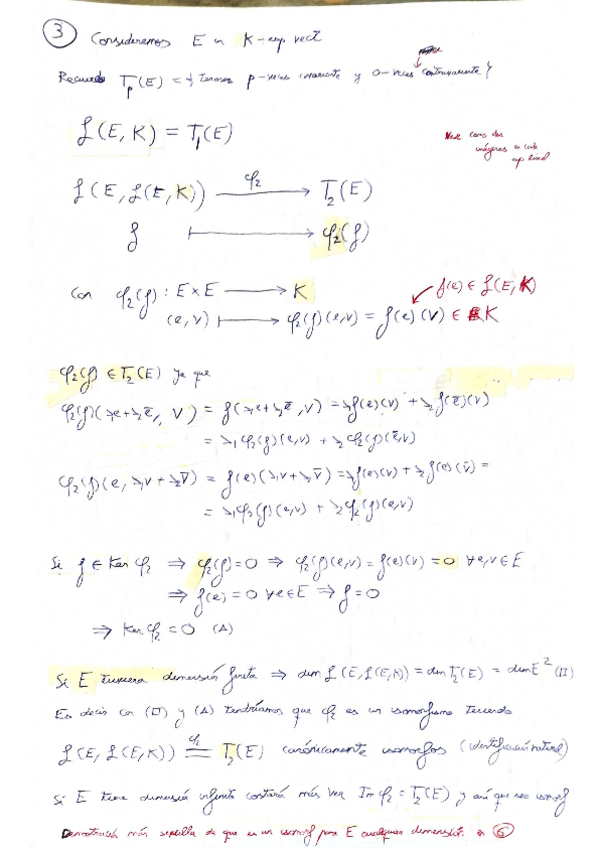 ③ Consideremos E un K-esp vect
Recuerdo T_p(E) = { tensores p-veces covariante y 0-veces contravariante }
L(E, K) = T_1(E)
como dar imágenes en cada
L(E, L(E, K)) —φ_2→ T_2(E)
f ⟼ φ_2(f)
Con φ_2(f): E×E ⟶ K
f(e) ∈ L(E, K)
(e, v) ⟼ φ_2(f)(e,v) = f(e)(v) ∈ K
φ_2(f) ∈ T_2(E) ya que
φ_2(f)(λ_1e+λ_2ē, v) = f(λ_1e+λ_2ē, v) = λ_1f(e)(v) + λ_2f(ē)(v)
= λ_1φ_2(f)(e,v) + λ_2φ_2(f)(ē,v)
φ_2(f)(e, λ_1v+λ_2v̄) = f(e)(λ_1v+λ_2v̄) = λ_1f(e)(v) + λ_2f(e)(v̄) =
= λ_1φ_2(f)(e,v) + λ_2φ_2(f)(e,v̄)
Si f ∈ Ker φ_2 ⟹ φ_2(f)=0 ⟹ φ_2(f)(e,v) = f(e)(v) = 0 ∀e,v∈E
⟹ f(e) = 0 ∀e∈E ⟹ f=0
⟹ Ker φ_2 = 0 (A)
Si E tuviera dimensión finita ⟹ dim L(E, L(E,K)) = dim T_2(E) = dim E² (II)
Es decir con (II) y (A) tendríamos que φ_2 es un isomorfismo teniendo
L(E, L(E,K)) =φ_2= T_2(E) canónicamente isomorfos (identificación natural)
Si E tiene dimensión infinita costará más ver Im φ_2 = T_2(E) y así que sea isomorf
Demostración más sencilla de que es un isomorf para E cualquier dimensión en ⑥